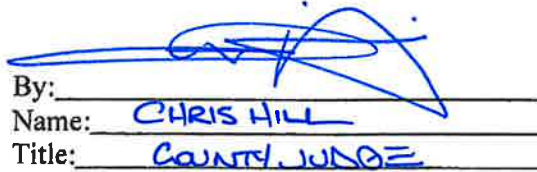 By:
Name: CHRIS HILL
Title: COUNTY JUDGE